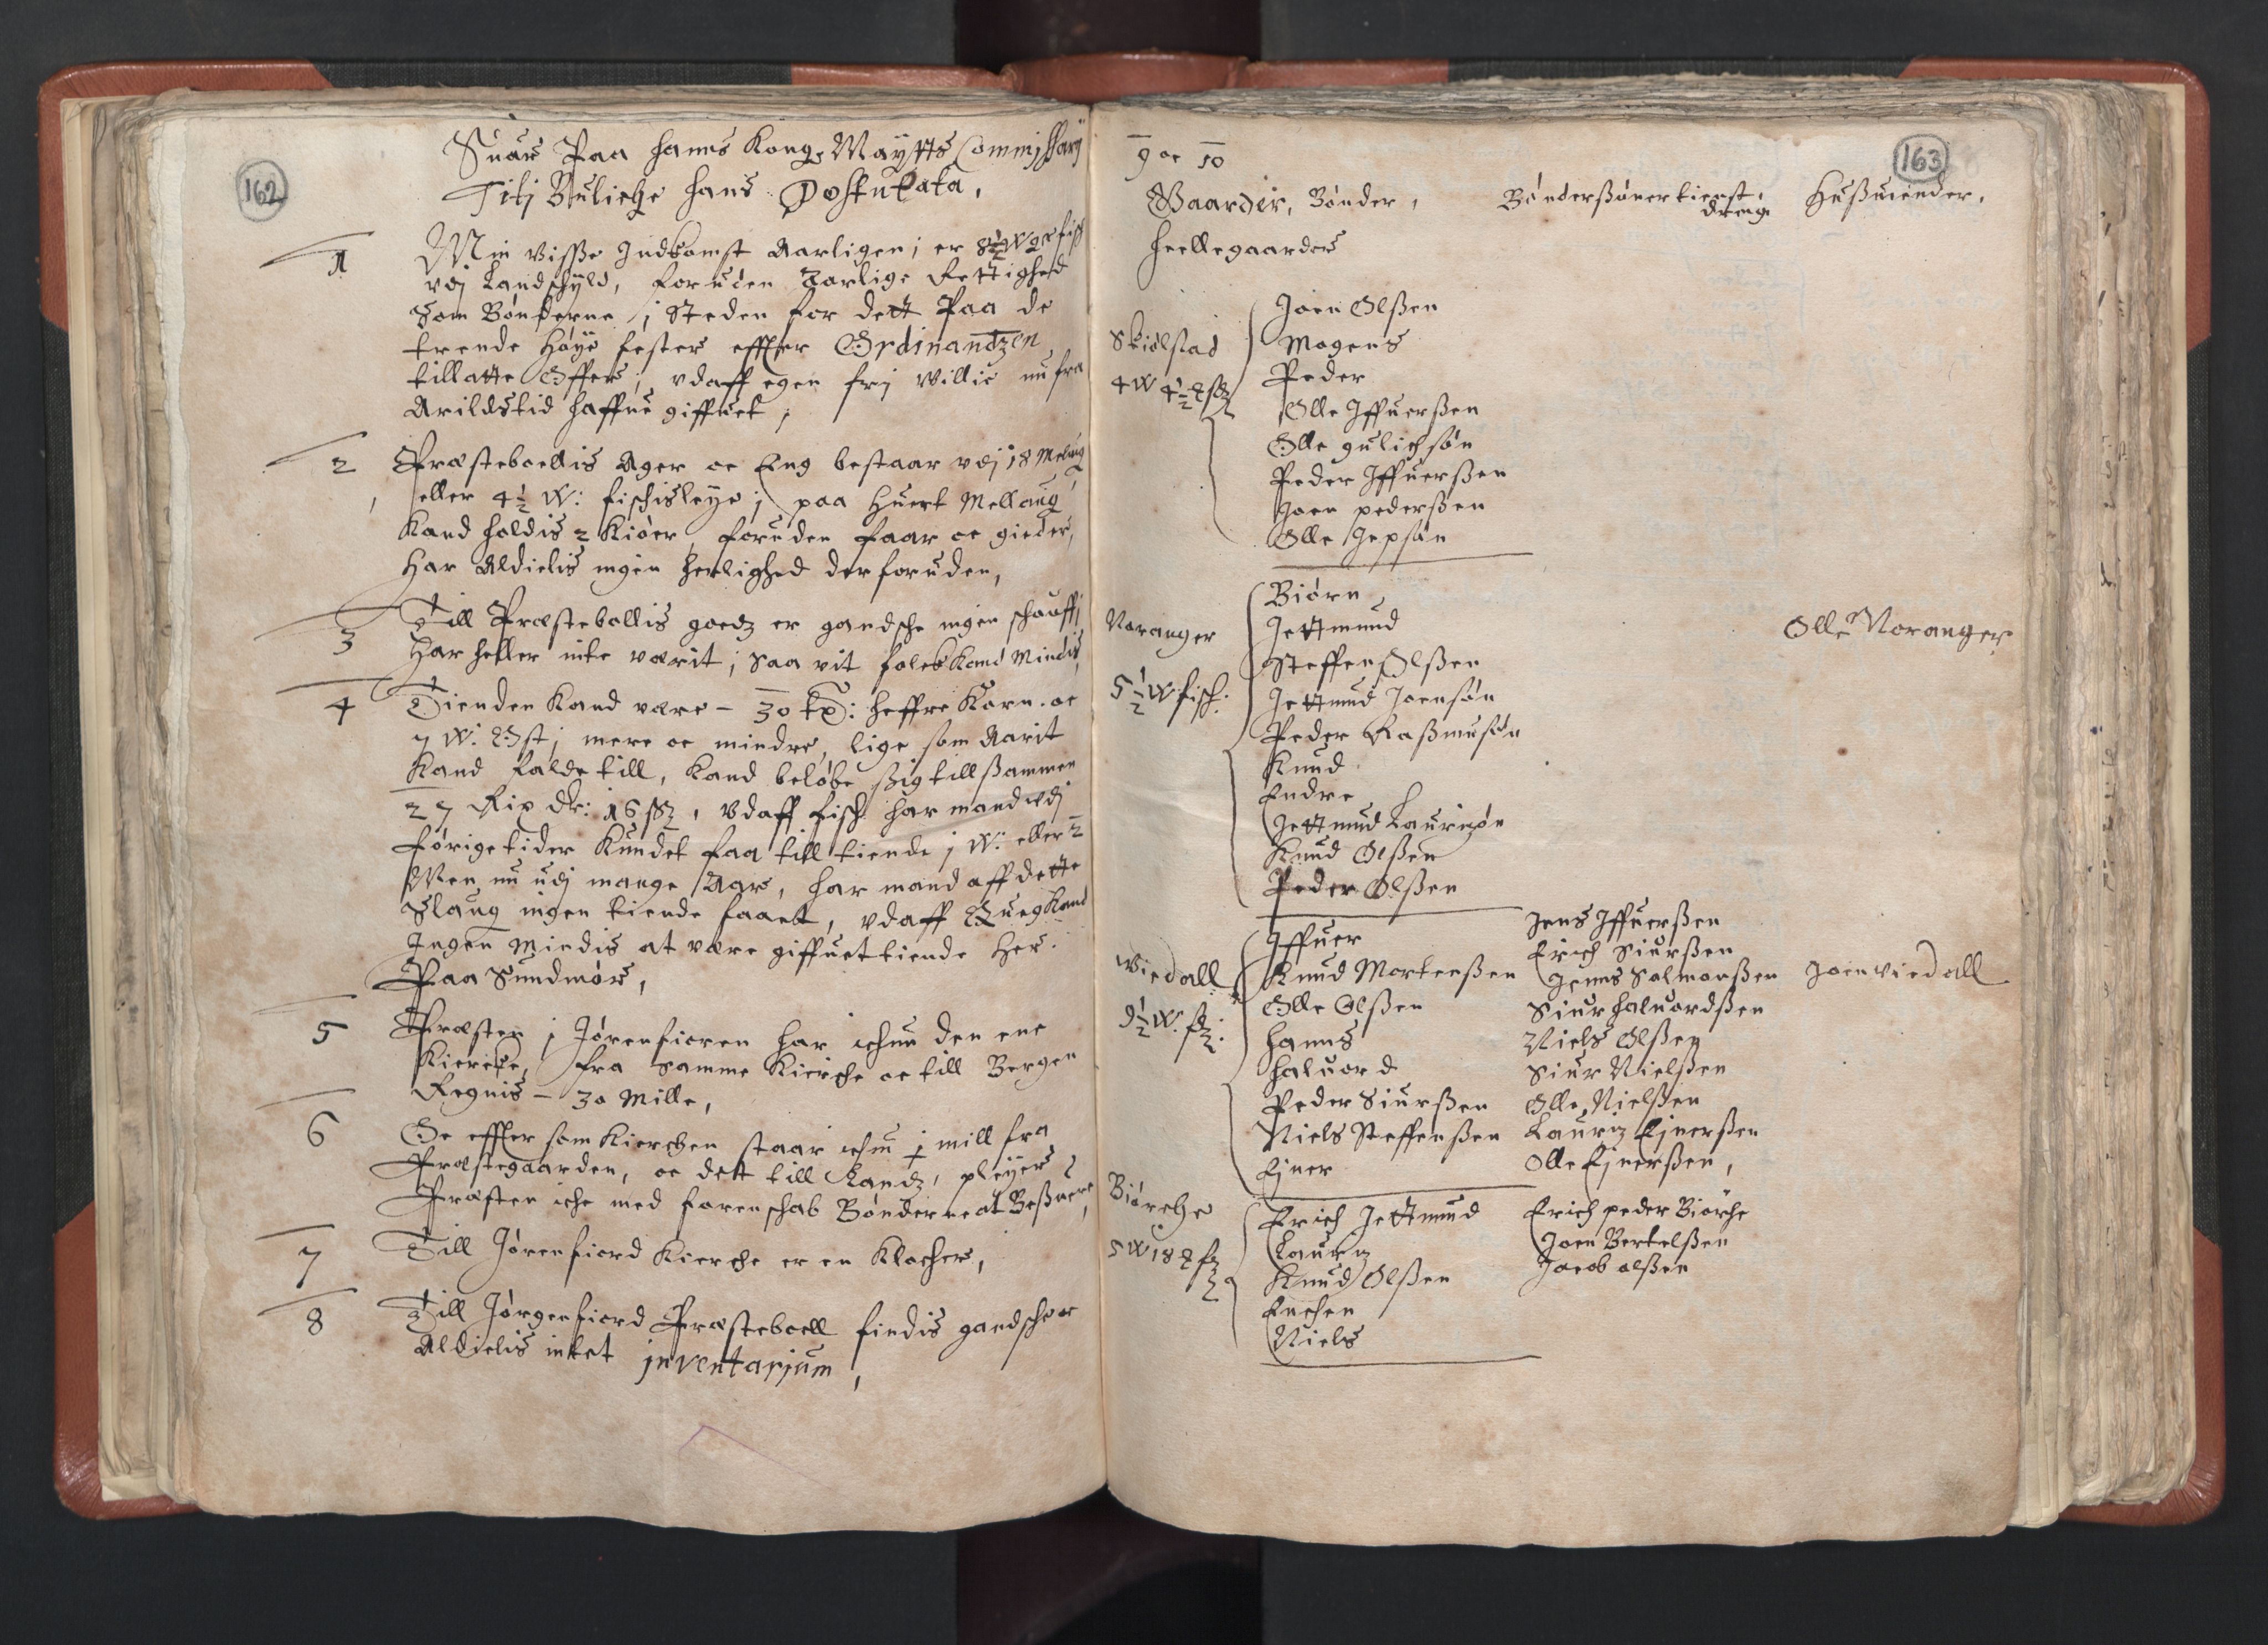 162
Suar Paa hanns Kong: Maytts Commissarij
Titj Buliche hans Postulata,
1 Min Visse Indkomst Aarligen, er 8½ W fisk
vdj Landschyld, foruden Aarlige Rettighed
som Bønderne j Steden for dett Paa de
trende Høye fester effter Ordinantzen
tillatte Offers, vdaff egen frj Villie nu fra
Arildstid haffue giffuet,
2 Præsteboellis Ager oc Eng bestaar vdj 18 Melaug
eller 4½ W: fischisleye, paa Huert Mellaug
Kand holdis 2 Kiøer, foruden faar oc gieder,
Har Aldielis ingen herlighed der foruden,
3 Till Præstebollis goedz er gandsche ingen schouff
Har heller inte værit, saa vit folck Kand Mindis
4 Tienden Kand være – 30 tøn: heffre Korn. oc
7 W: Ost, mere oc mindre, lige som Aarit
Kand falde till, Kand beløbe sig till sammen
27 Rix dlr: 16 ß, Vdaff fisch har mand vdj
førige tider Kundet faa till tiende j W: eller 2
Men nu udj mange Aar, har mand aff dette
Slaug ingen tiende faaet, vdaff Queg Kand
Ingen Mindis at være giffuet tiende Her
Paa Sundmør,
5 Præsten j Jørenfioren har ichun den ene
Kiercke, fra samme Kierche oc till Bergen
Regnis – 30 Mille,
6 Oc effter som Kierchen staar ichun j mill fra
Præstegaarden, oc dett till Landz, pleyer
Præsten iche med forenschab Bønderne at Besuere,
7 Till Jørenfiord Kierche er en Klocher,
8 Till Jørgenfiord Præsteboell findis gandsche oc
Aldielis intet inventarium,
163
9 oc 10
Gaarder, Bønder, Bønderßøner tienst drenge Hußmender,
Heellegaarder
Skiølstad
4 W 4½
Joen Olßen
Mogens
Peder
Olle Iffuerßen
Olle gulichsøn
Peder Iffuerßen
Joen pederßen
Olle Jepsøn
Noranger
5½ W fisch:
Biørn
Jettmund
Steffen Olßen
Jettmud Joensøn
Peder Raßmusøn
Knud
Endre
Jettmud Lauritzøn
Knud Olßen
Peder Olßen
Olle Noranger
Viedall
9½ W. f:
Iffuer
Knud Mortenßen
Olle Olßen
Hanns
Haluord
Peder Siurßen
Niels Steffenßen
Ejner
Jens Iffuerßen
Erich Siurßen
Jenns Salmonßen
Siur Haluordßen
Niels Olßen
Siur Nielßen
Olle Nielßen
Lauritz Ejnerßen
Olle Ejnerßen,
Joen Viedall
Biørche
5 W 18
Erich Jettmund
Lauritz
Knud Olßen
Enchen
Niels
Erich peder Biørche
Joen Bertelßen
Jacob olßen